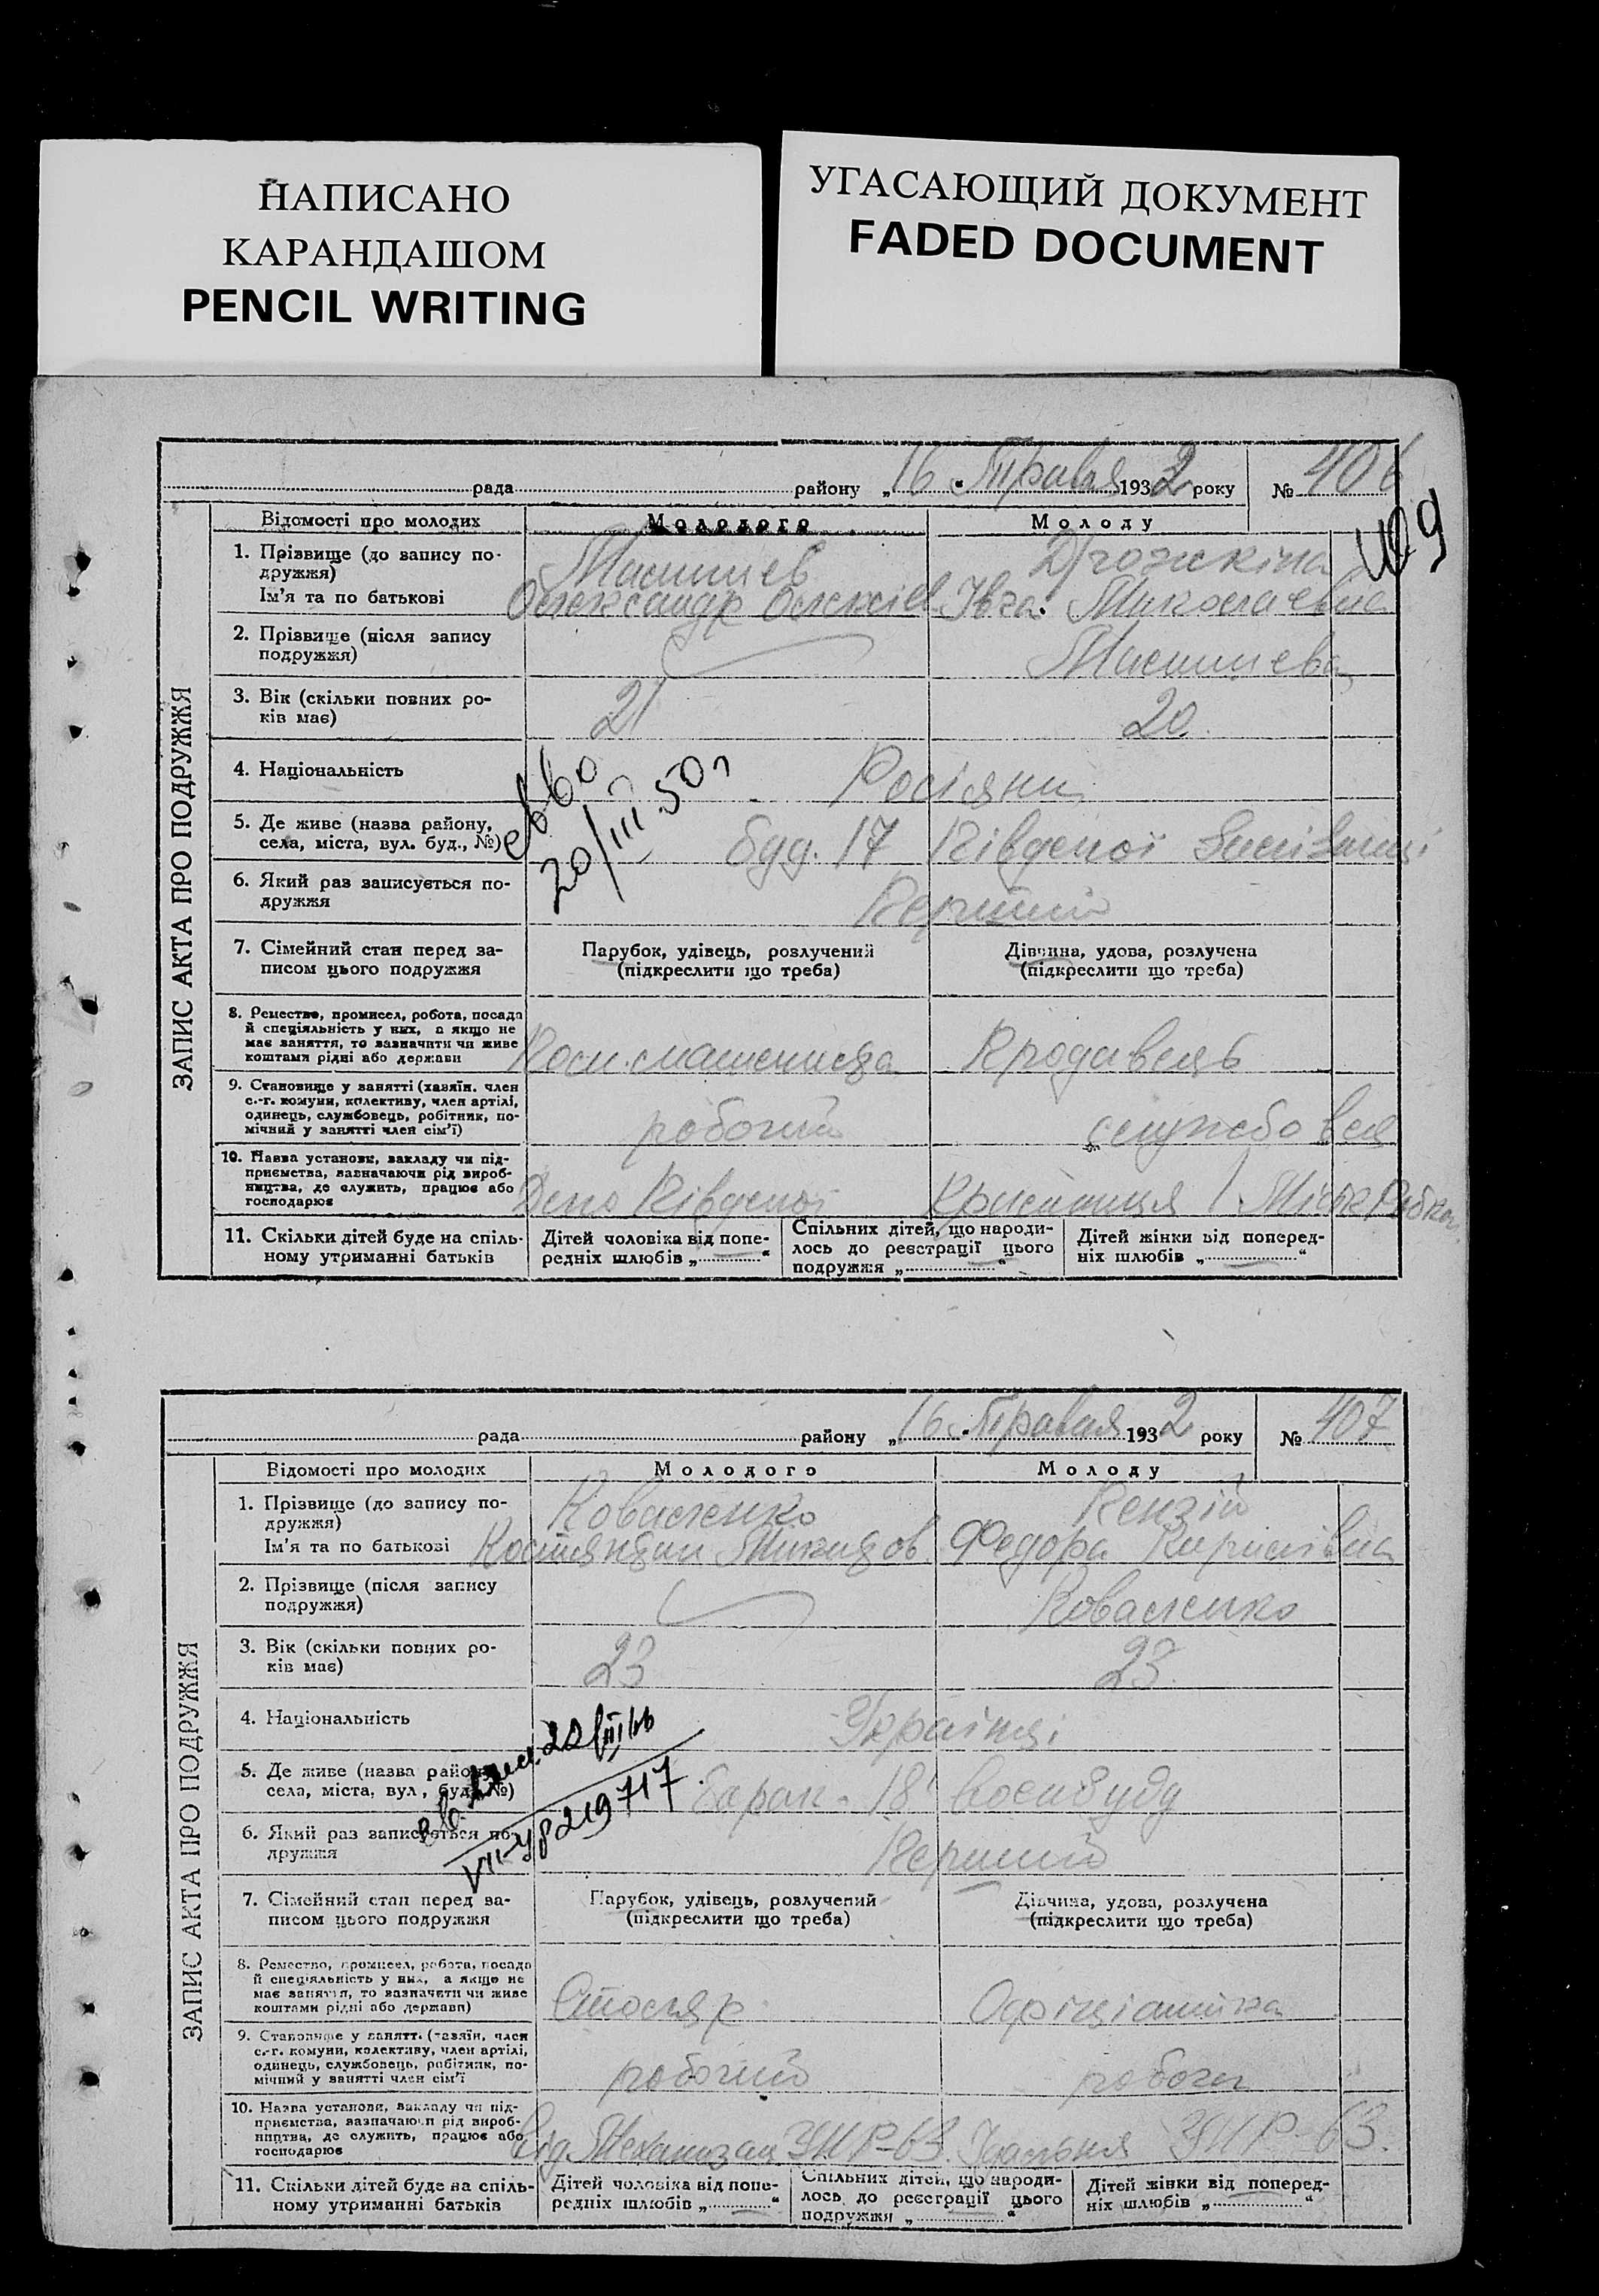 НАПИСАНО
КАРАНДАШОМ
PENCIL WRITING
УГАСАЮЩИЙ ДОКУМЕНТ
FADED DOCUMENT
ЗАПИС АКТА ПРО ПОДРУЖЖЯ
рада району „16" Травня 1932 року № 406
409
Відомості про молодих Молодого Молоду
1. Прізвище (до запису по-
дружжя)
Ім'я та по батькові
Олександр Олексієв Івга Миколаевна
2. Прізвище (після запису
подружжя)
3. Вік (скільки повних ро-
ків має) 21 20
4. Національність Росіяни
20/III 50 г
5. Де живе (назва району,
села, міста, вул. буд., №) буд. 17 Південої
6. Який раз записується по-
дружжя Перший
7. Сімейний стан перед за-
писом цього подружжя
Парубок, удівець, розлучений
(підкреслити що треба)
Дівчина, удова, розлучена
(підкреслити що треба)
8. Ремество, промисел, робота, посада
й спеціяльність у них, а якщо не
має заняття, то зазначити чи живе
коштами рідні або держави Пом. машениста Продавець
9. Становище у занятті (хазяїн, член
с.-г. комуни, колективу, член артілі,
одинець, службовець, робітник, по-
мічний у занятті член сім'ї) робочий службовець
10. Назва установи, закладу чи під-
приємства, зазначаючи рід вироб-
ництва, де служить, працює або
господарює Депо Південої
11. Скільки дітей буде на спіль-
ному утриманні батьків
Дітей чоловіка від попе-
редніх шлюбів „ — "
Спільних дітей, що народи-
лось до реєстрації цього
подружжя „ — "
Дітей жінки від поперед-
ніх шлюбів „ — "
ЗАПИС АКТА ПРО ПОДРУЖЖЯ
рада району „16" Травня 1932 року № 407
Відомості про молодих Молодого Молоду
1. Прізвище (до запису по-
дружжя) Коваленко Кензій
Ім'я та по батькові Костянтин Микитов Федора Кирилівна
2. Прізвище (після запису
подружжя) Коваленко
3. Вік (скільки повних ро-
ків має) 23 23
4. Національність Українці
5. Де живе (назва району,
села, міста, вул., буд. №) барак 18
219717
6. Який раз записується по-
дружжя Перший
7. Сімейний стан перед за-
писом цього подружжя
Парубок, удівець, розлучений
(підкреслити що треба)
Дівчина, удова, розлучена
(підкреслити що треба)
8. Ремество, промисел, робота, посада
й спеціяльність у них, а якщо не
має заняття, то зазначити чи живе
коштами рідні або держави) Столяр Офіціантка
9. Становище у занятт. (хазяїн, член
с.-г. комуни, колективу, член артілі,
одинець, службовець, робітник, по-
мічний у занятті член сім'ї робочий робоча
10. Назва установи, закладу чи під-
приємства, зазначаючи рід вироб-
ництва, де служить, працює або
господарює
11. Скільки дітей буде на спіль-
ному утриманні батьків
Дітей чоловіка від попе-
редніх шлюбів „ — "
Спільних дітей, що народи-
лось до реєстрації цього
подружжя „ — "
Дітей жінки від поперед-
ніх шлюбів „ — "